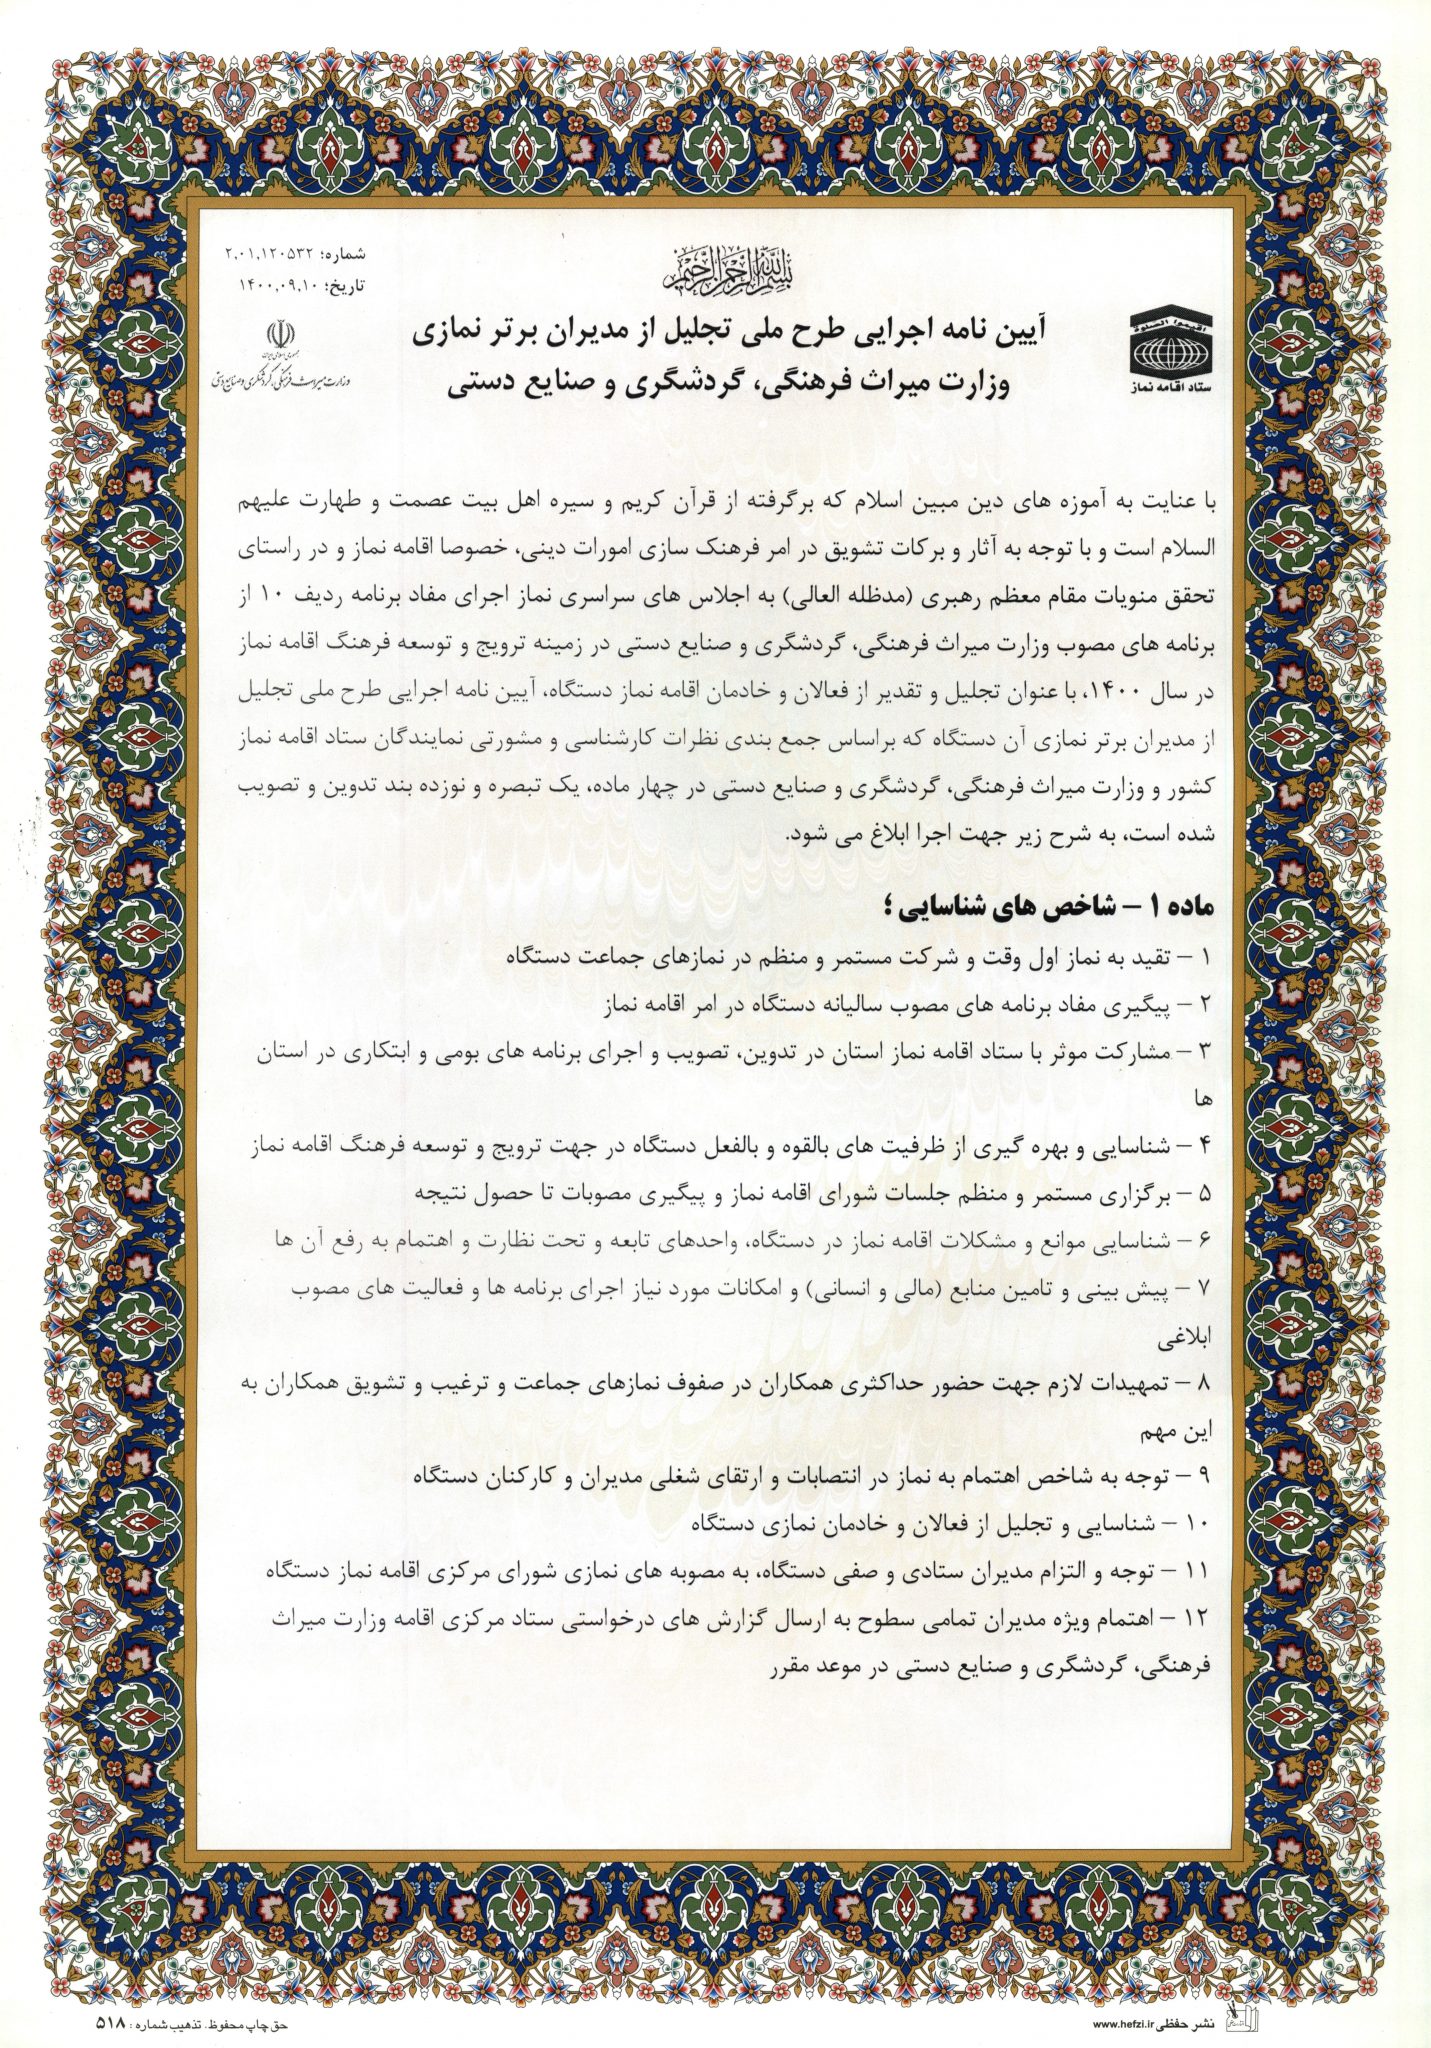 بسم الله الرحمن الرحیم
شماره: ۲,۰۱,۱۲۰۵۳۲
تاریخ: ۱۴۰۰,۰۹,۱۰
جمهوری اسلامی ایران
وزارت میراث فرهنگی، گردشگری و صنایع دستی
اقیموا الصلوة
ستاد اقامه نماز
آیین نامه اجرایی طرح ملی تجلیل از مدیران برتر نمازی
وزارت میراث فرهنگی، گردشگری و صنایع دستی
با عنایت به آموزه های دین مبین اسلام که برگرفته از قرآن کریم و سیره اهل بیت عصمت و طهارت علیهم
السلام است و با توجه به آثار و برکات تشویق در امر فرهنک سازی امورات دینی، خصوصا اقامه نماز و در راستای
تحقق منویات مقام معظم رهبری (مدظله العالی) به اجلاس های سراسری نماز اجرای مفاد برنامه ردیف ۱۰ از
برنامه های مصوب وزارت میراث فرهنگی، گردشگری و صنایع دستی در زمینه ترویج و توسعه فرهنگ اقامه نماز
در سال ۱۴۰۰، با عنوان تجلیل و تقدیر از فعالان و خادمان اقامه نماز دستگاه، آیین نامه اجرایی طرح ملی تجلیل
از مدیران برتر نمازی آن دستگاه که براساس جمع بندی نظرات کارشناسی و مشورتی نمایندگان ستاد اقامه نماز
کشور و وزارت میراث فرهنگی، گردشگری و صنایع دستی در چهار ماده، یک تبصره و نوزده بند تدوین و تصویب
شده است، به شرح زیر جهت اجرا ابلاغ می شود.
ماده ۱ – شاخص های شناسایی ؛
۱ – تقید به نماز اول وقت و شرکت مستمر و منظم در نمازهای جماعت دستگاه
۲ – پیگیری مفاد برنامه های مصوب سالیانه دستگاه در امر اقامه نماز
۳ – مشارکت موثر با ستاد اقامه نماز استان در تدوین، تصویب و اجرای برنامه های بومی و ابتکاری در استان
ها
۴ – شناسایی و بهره گیری از ظرفیت های بالقوه و بالفعل دستگاه در جهت ترویج و توسعه فرهنگ اقامه نماز
۵ – برگزاری مستمر و منظم جلسات شورای اقامه نماز و پیگیری مصوبات تا حصول نتیجه
۶ – شناسایی موانع و مشکلات اقامه نماز در دستگاه، واحدهای تابعه و تحت نظارت و اهتمام به رفع آن ها
۷ – پیش بینی و تامین منابع (مالی و انسانی) و امکانات مورد نیاز اجرای برنامه ها و فعالیت های مصوب
ابلاغی
۸ – تمهیدات لازم جهت حضور حداکثری همکاران در صفوف نمازهای جماعت و ترغیب و تشویق همکاران به
این مهم
۹ – توجه به شاخص اهتمام به نماز در انتصابات و ارتقای شغلی مدیران و کارکنان دستگاه
۱۰ – شناسایی و تجلیل از فعالان و خادمان نمازی دستگاه
۱۱ – توجه و التزام مدیران ستادی و صفی دستگاه، به مصوبه های نمازی شورای مرکزی اقامه نماز دستگاه
۱۲ – اهتمام ویژه مدیران تمامی سطوح به ارسال گزارش های درخواستی ستاد مرکزی اقامه وزارت میراث
فرهنگی، گردشگری و صنایع دستی در موعد مقرر
نشر حفظی www.hefzi.ir
حق چاپ محفوظ. تذهیب شماره : ۵۱۸